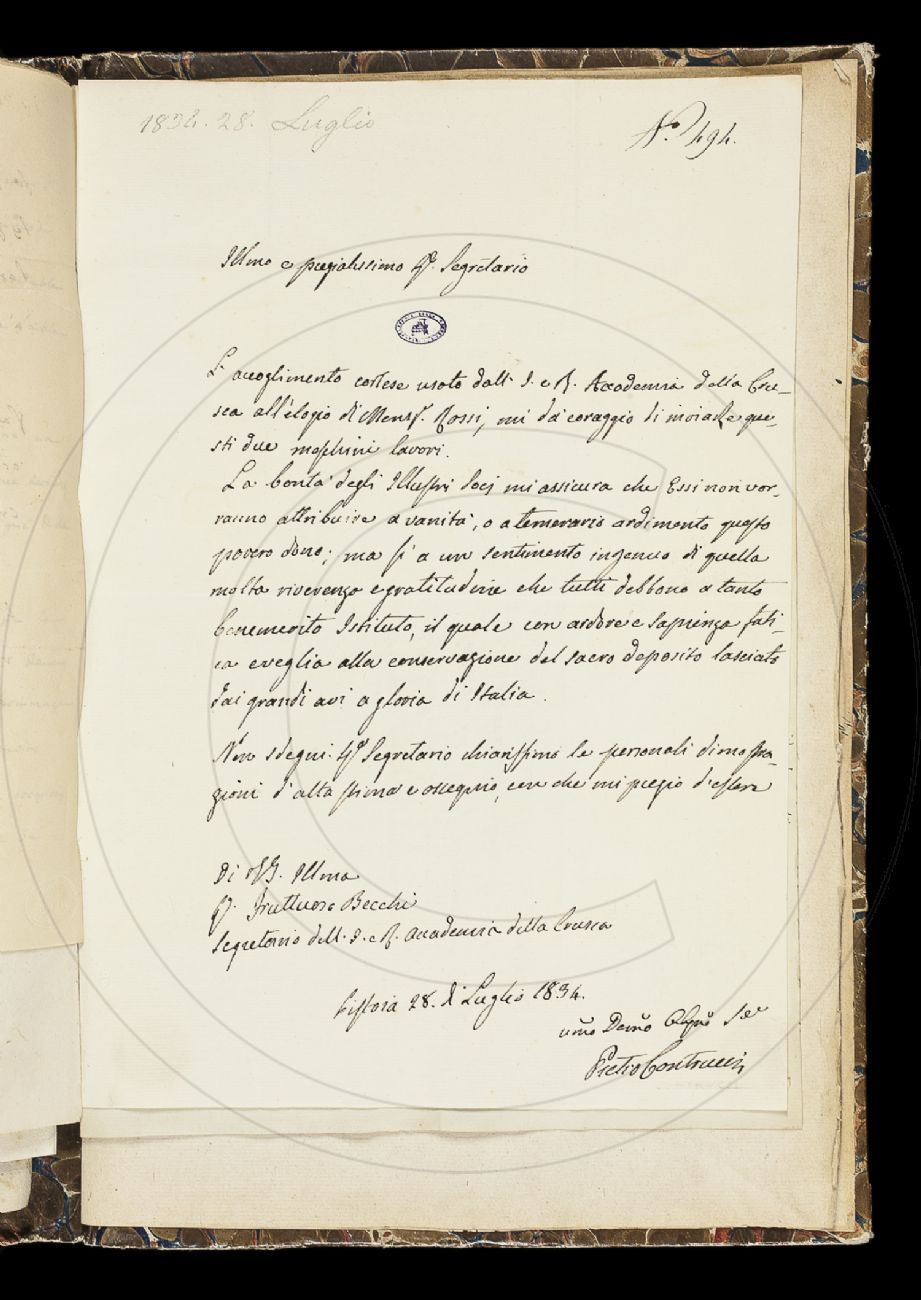 1834. 28. Luglio
N.° 494.
Illmo e pregiatissimo Sig.r Segretario
L'accoglimento cortese usato dall' I. e R. Accademia della Cru-
sca all'elogio di Mons.r Rossi, mi dà coraggio di inviarle que-
sti due meschini lavori.
La bontà degli Illustri Socj mi assicura che Essi non vor-
ranno attribuire a vanità, o a temerario ardimento questo
povero dono; ma sì a un sentimento ingenuo di quella
molta riverenza e gratitudine che tutti debbono a tanto
benemerito Istituto, il quale con ardore e sapienza fati-
ca e veglia alla conservazione del sacro deposito lasciato
dai grandi avi a gloria di Italia.
Non sdegni Sig.r Segretario chiarissimo le personali dimostra-
zioni d'alta stima e ossequio, con che mi pregio d'essere
Di V.S. Illma
S. Fruttuoso Becchi
Segretario dell' I. e R. Accademia della Crusca
Pistoia 28. di Luglio 1834.
umo Devmo Obbmo Ser
Pietro Contrucci